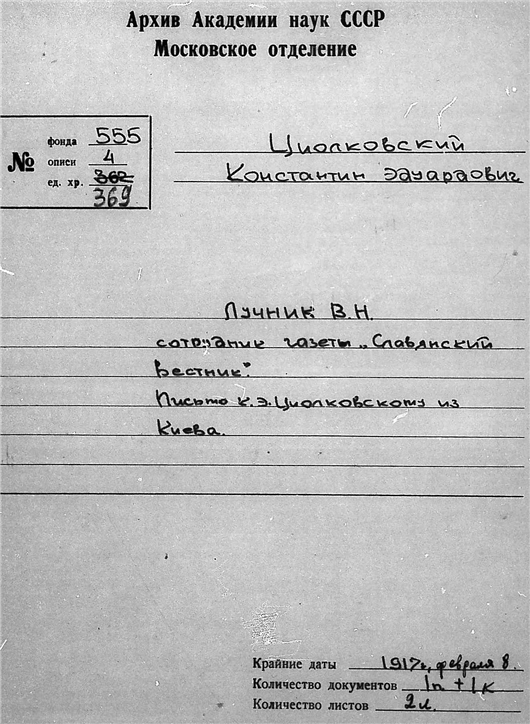 Архив Академии наук СССР
Московское отделение
№
фонда 555
описи 4
ед. хр. 362
369
Циолковский
Константин Эдуардович
Лучник В.Н.
сотрудник газеты „Славянский
Вестник".
Письмо К.Э.Циолковскому из
Киева.
Крайние даты 1917г, февраля 8.
Количество документов 1п + 1к
Количество листов 2л.